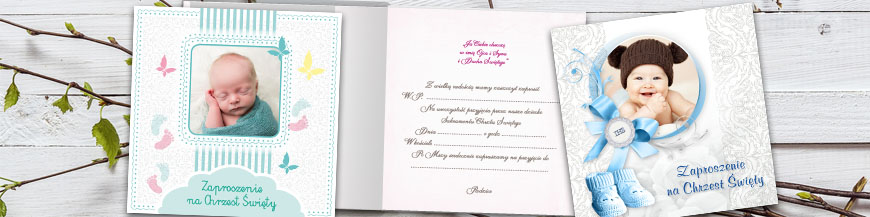 Zaproszenie
na Chrzest Święty
"Ja Ciebie chrzczę
w imię Ojca i Syna
i Ducha Świętego"
Z wielką radością mamy zaszczyt zaprosić
W.P.
Na uroczystość przyjęcia przez nasze dziecko
Sakramentu Chrztu Świętego
Dnia o godz.
W kościele
Po Mszy serdecznie zapraszamy na przyjęcie do
Rodzice
Zaproszenie
na Chrzest Święty